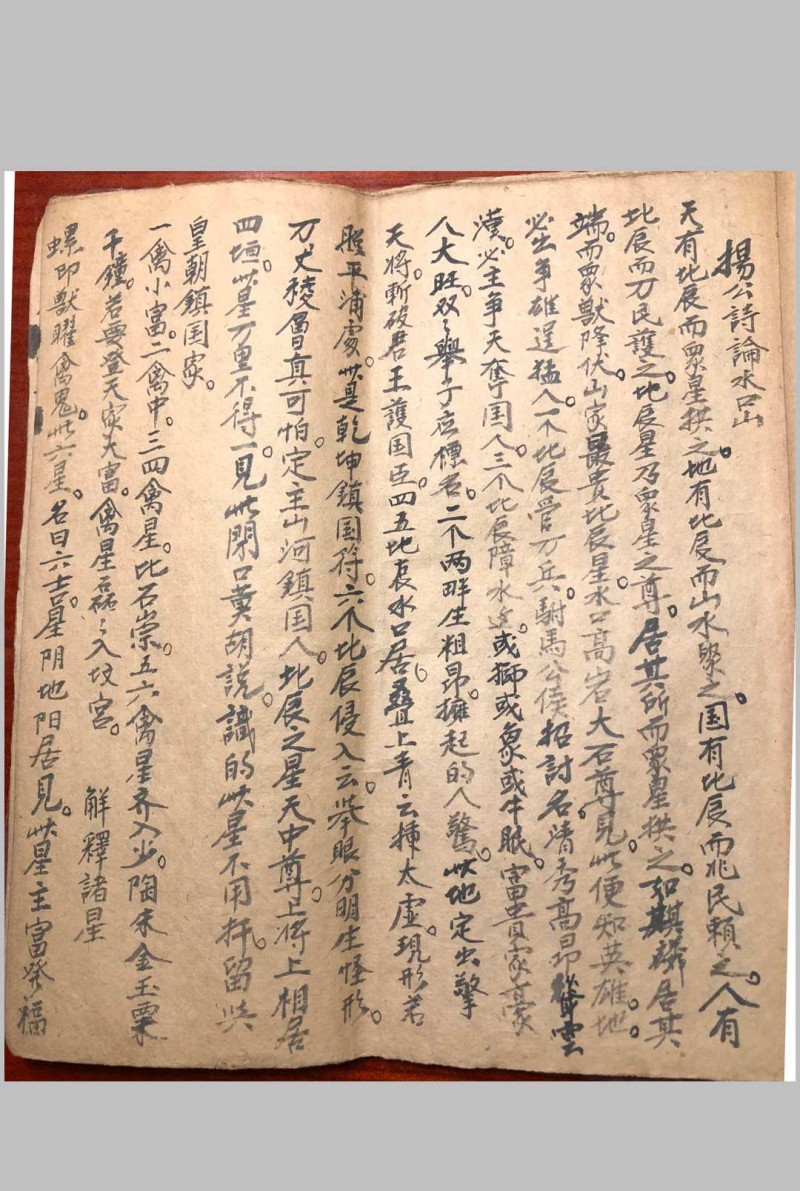 楊公詩論水口山
天有北辰而眾星拱之。地有北辰而山水聚之。国有北辰而兆民賴之。人有
北辰而万民護之。北辰星乃眾星之尊。居其所而眾星拱之。如麒麟居其
端。而眾獸降伏。山家最貴北辰星。水口高岩大石尊。見此便知英雄地。
必出争雄逞猛人。一个北辰管万兵。駙馬公侯招討名。清秀高昂聳雲
漢。必主争天奪国人。三个北辰障水边。或獅或象或牛眠。富貴家豪
八大旺。双々舉子应標名。二个两畔生粗昂。擁起的人驚。此地定出擎
天將。斬破君王護国臣。四五北辰水口居。叠上青云揷太虚。現形若
照平浦處。此是乾坤鎮国符。六个北辰侵入云。举眼分明生怪形。
万丈稜曾真可怕。定主山河鎮国人。北辰之星天中尊。上將上相居
四垣。此星万里不得一。見此閉口莫胡說。識的此星不用扦。留與
皇朝鎮国家。
一禽小富。二禽中。三四禽星。比石崇。五六禽星齐入少。陶朱金玉粟
千鐘。若要登天家大富。禽星磊々入坟宮。 解釋諸星
螺印獸曜禽鬼。此六星。名曰六吉星。阴地阳居見。此星主富發福